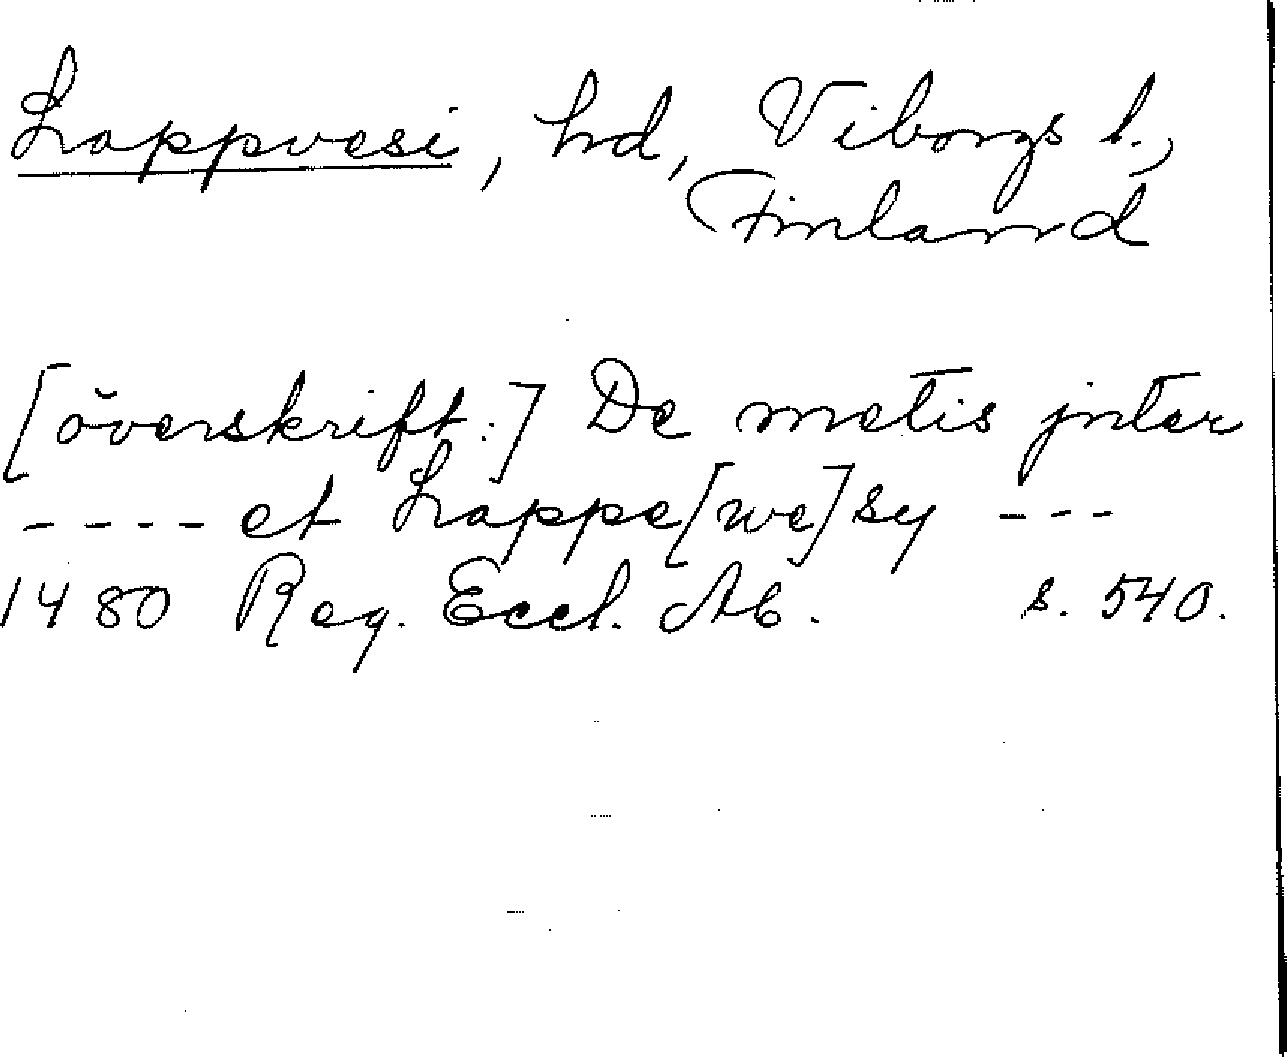 Lappvesi, hd, Viborgs l.,
Finland
[överskrift:] De metis jnter
---- et Lappe[we]sy ---
1480 Reg. Eccl. Ab. s. 540.